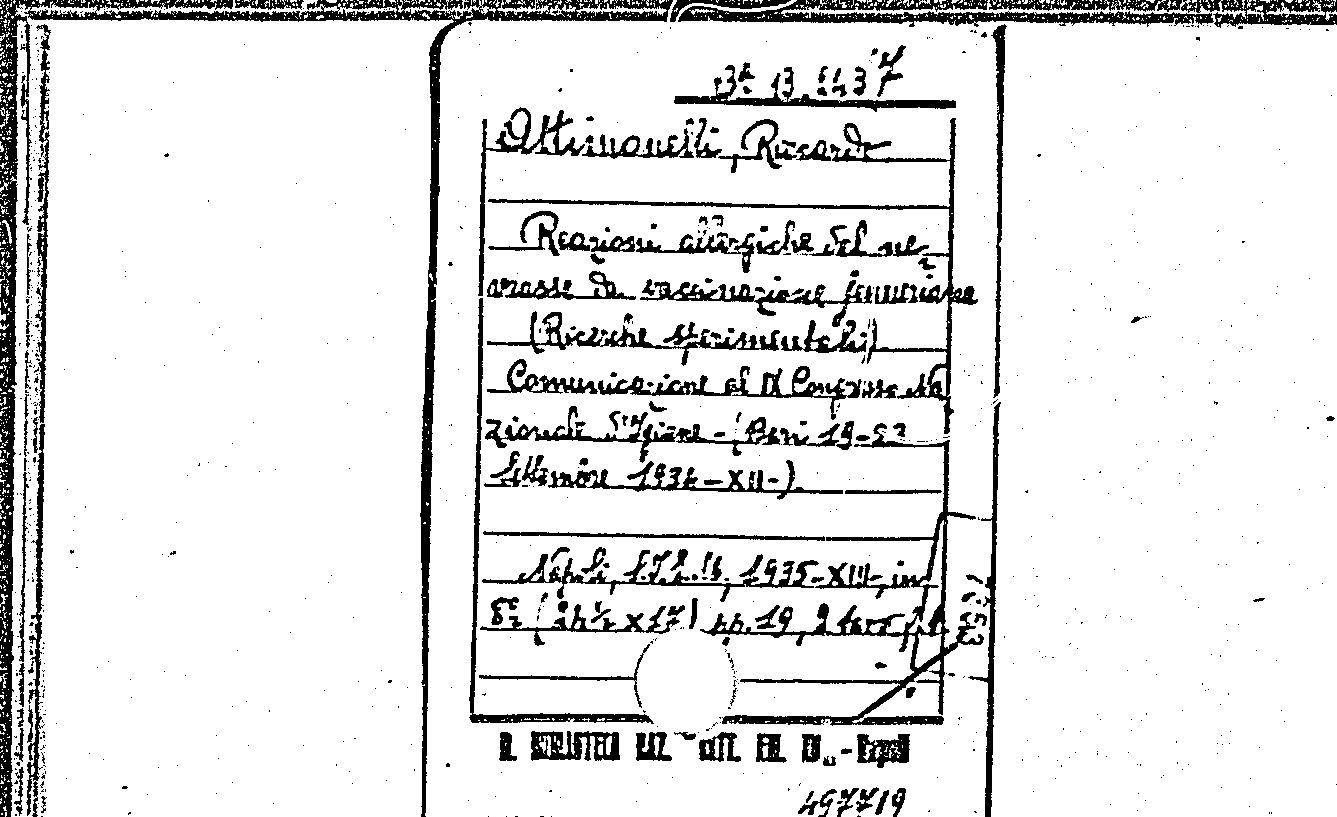 Attimonelli, Riccardo
Reazioni allergiche del ne-
vrasse da vaccinazione jenneriana
(Ricerche sperimentali)
Comunicazione al IX Congresso Na
zionale d'Igiene - (Bari 19-
Settembre 1934 - XII -)
Napoli, 1935-XIII-, in
8° (24½ x 17) pp. 19, 2
BIBLIOTECA NAZ. - Napoli
497719